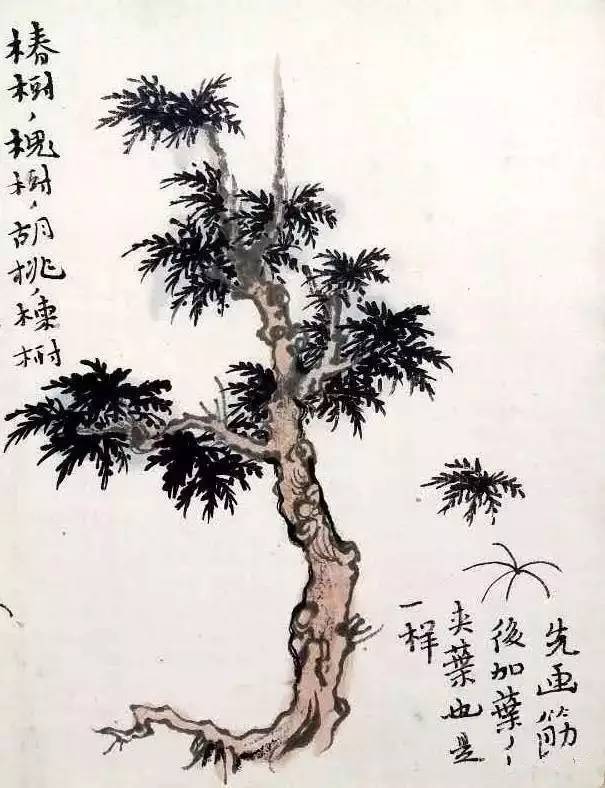 椿樹、槐樹、胡桃、楝樹
先画筋
後加葉、、
夹葉也是
一样